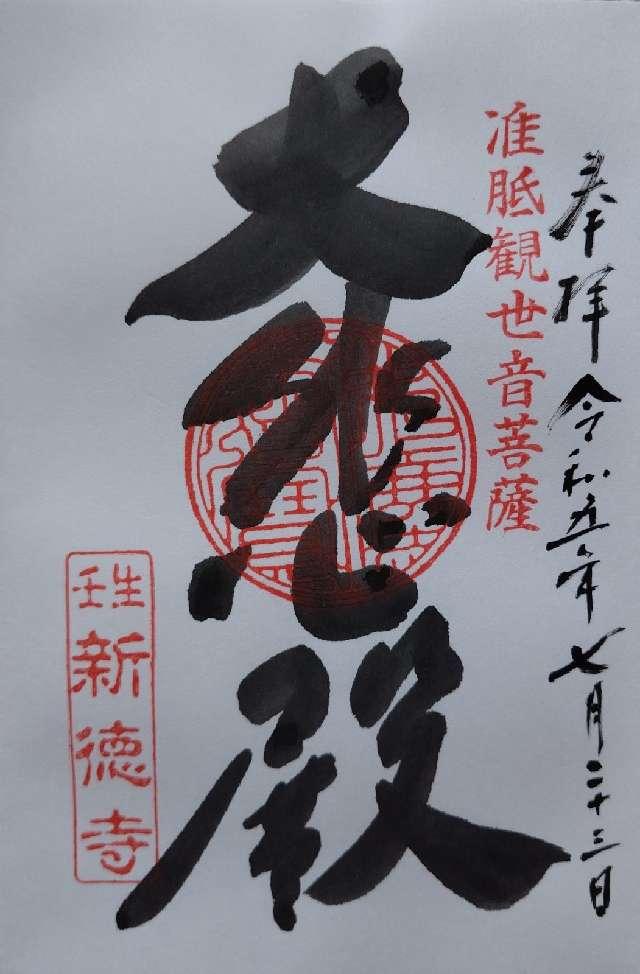 奉拝 令和五年七月二十三日
准胝観世音菩薩
大悲殿
壬生 新徳寺